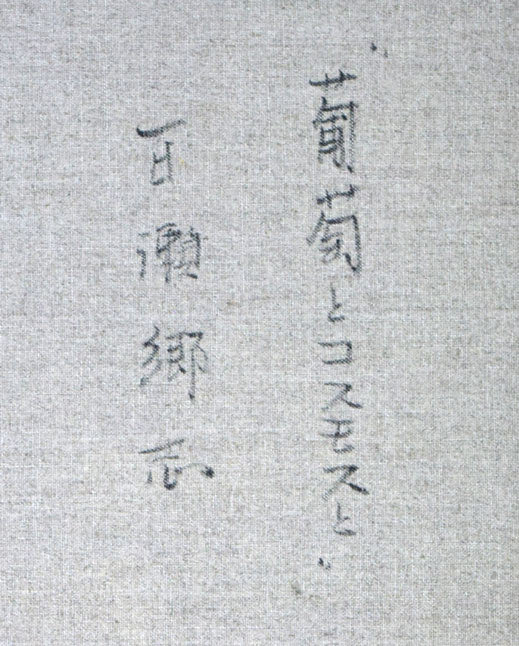 "葡萄とコスモスと"
百瀬郷志